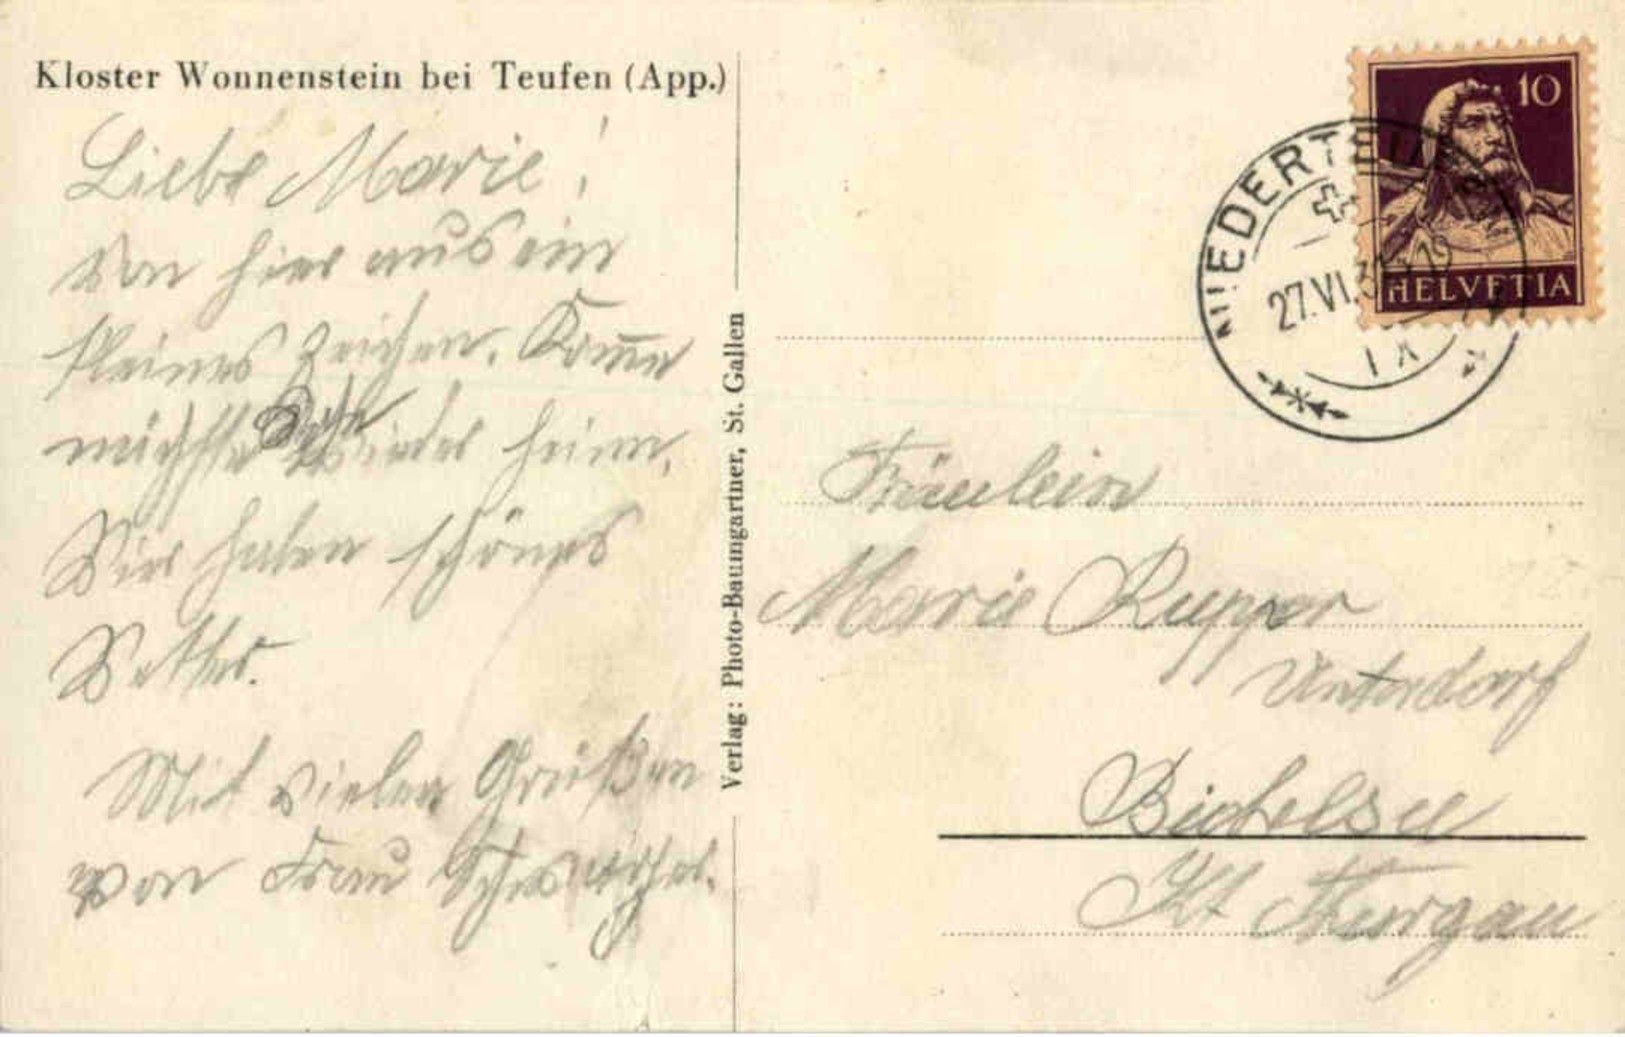 Kloster Wonnenstein bei Teufen (App.)
Liebe Marie!
Von hier aus ein
kleines Zeichen. Komme
möchte wieder heim.
Wir haben schönes
Wetter.
Mit vielen Grüßen
von Frau
Verlag: Photo-Baumgartner, St. Gallen
10
HELVETIA
NIEDERTEUFEN
27.VI.3
Fräulein
Marie Rupper
Unterdorf
Bichelsee
Kt Thurgau